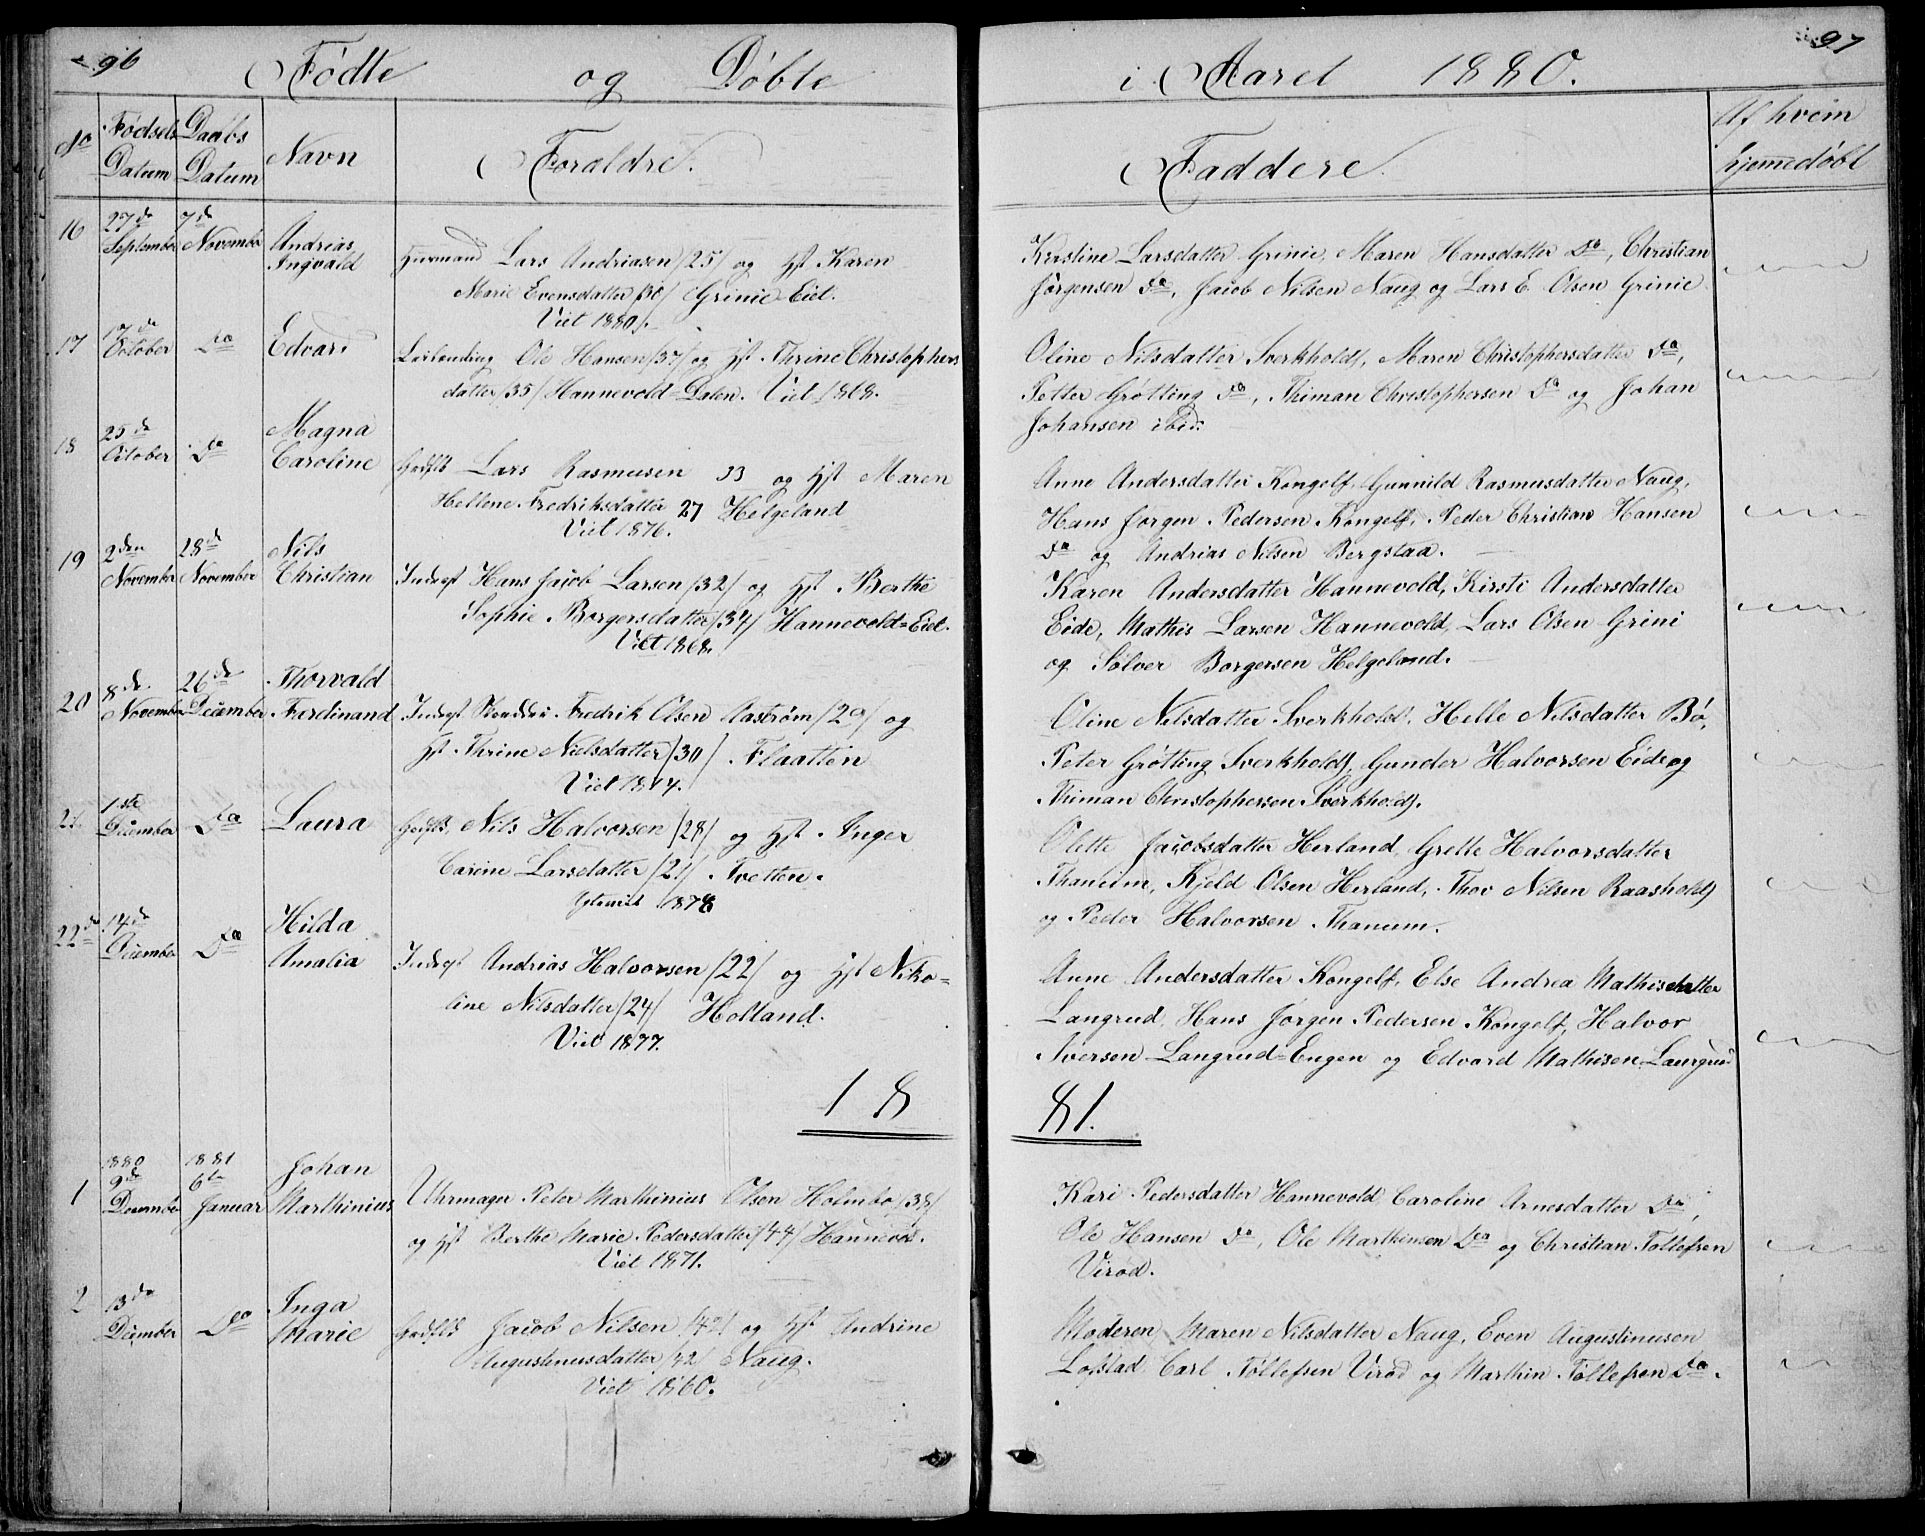 96
Födte og Döbte
i Aaret 1880.
97
No
Fødsels Datum
Daabs Datum
Navn
Foraldre.
Faddere.
Af hvem hjemedøbt
16
27de September
7de November
Andrias Ingvald
Huusmand Lars Andriasen /25/ og Hst Karen
Marie Evensdatter /30/ Grinie-Eiet.
Viet 1880.
Kirstine Larsdatter Grinie, Maren Hansdatter Do, Christian
Jörgensen Do, Jacob Nilsen Naug og Lars E. Olsen Grinie
17
17de October
Do
Edvard
Leilending Ole Hansen /37/ og Hst Thrine Christophers
datter /35/ Hannevold-Dalen. Viet 1868.
Oline Nilsdatter Sverkholdt, Maren Christophersdatter Do,
Petter Grötting Do, Thiman Christophersen Do og Johan
Johansen ibid.
18
25de October
Do
Magna Caroline
Gadfbr Lars Rasmusen 33 og Hst Maren
Hellene Fredriksdatter 27 Helgeland
Viet 1876.
Anne Andersdatter Kongelf, Gunnild Rasmusdatter Naug,
Hans Jörgen Pedersen Kongelf, Peder Christian Hansen
Do og Andrias Nilsen Bergstaa.
19
2den November
28de November
Nils Christian
Inderst Hans Jacob Larsen /32/ og Hst Berthe
Sophie Borgersdatter /34/ Hannevold=Eiet.
Viet 1868.
Karen Andersdatter Hannevold, Kirsti Andersdatter
Eide, Mathis Larsen Hannevold, Lars Olsen Grini
og Sölver Borgersen Helgeland.
20
8de November
26de December
Thorvald Ferdinand
Inderst Skrædder Fredrik Olsen Aaström /29/ og
Hst Thrine Nielsdatter /30/ Flaatten
Viet 1874.
Oline Nilsdatter Sverkholdt, Helle Nilsdatter Bö,
Peter Grötting Sverkholdt, Gunder Halvorsen Eide og
Thiman Christophersen Sverkholdt.
21
1ste December
Do
Laura
Gadfbr, Nils Halvorsen /28/ og Hst Inger
Carine Larsdatter /21/ Tvetten.
1878
Olette Jacobsdatter Herland, Grethe Halvorsdatter
Thanum, Kjeld Olsen Herland, Thov Nilsen Raasholdt
og Peder Halvorsen Thanum.
22de
14de December
Do
Hilda Amalia
Inderst Andrias Halvorsen /22/ og Hst Niko=
line Nilsdatter /24/ Holland.
Viet 1877.
Anne Andersdatter Kongelf, Else Andrea Mathisdatter
Langrud, Hans Jörgen Pedersen Kongelf, Halvor
Iversen Langrud=Engen og Edvard Mathisen Langrud
1881.
1
1880
9de December
1881
6te Januar
Johan Marthinius
Uhrmager Peter Marthinius Olsen Holmbo /38/
og Hst Berthe Marie Pedersdatter /44/ Hannevold.
Viet 1871.
Kari Pedersdatter Hannevold, Caroline Arnesdatter Do,
Ole Hansen Do, Ole Marthinsen Do og Christian Tollefsen
Viröd.
2
13de December
Do
Inga Marie
Gadfbr Jacob Nilsen /42/ og Hst Andrine
Augustinusdatter /42/ Naug.
Viet 1860.
Moderen, Maren Nilsdatter Naug, Even Augustinusen
Lofstad, Carl Töllefsen Viröd og Marthin Töllefsen Do.